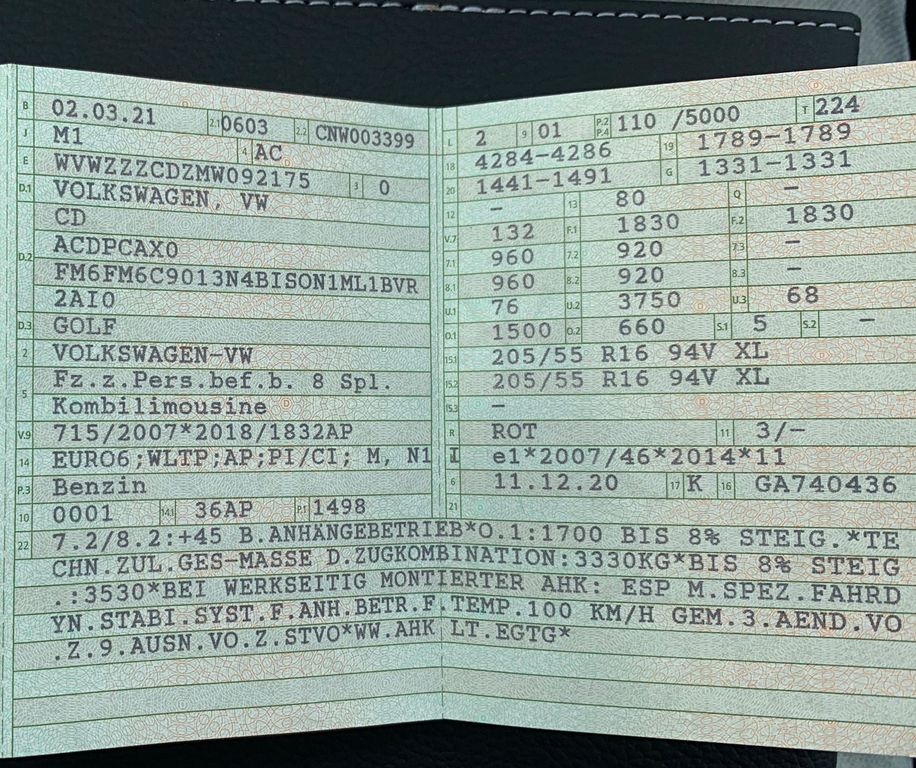 B 02.03.21 2.1 0603 2.2 CNW003399
J M1 4 AC
E WVWZZZCDZMW092175 3 0
D.1 VOLKSWAGEN, VW
D.2 CD
ACDPCAX0
FM6FM6C9013N4BISON1ML1BVR
2AI0
D.3 GOLF
2 VOLKSWAGEN-VW
5 Fz.z.Pers.bef.b. 8 Spl.
Kombilimousine
V.9 715/2007*2018/1832AP
14 EURO6;WLTP;AP;PI/CI; M, N1 I
P.3 Benzin
10 0001 14.1 36AP P.1 1498
L 2 9 01 P.2 P.4 110 /5000 T 224
18 4284-4286 19 1789-1789
20 1441-1491 G 1331-1331
12 - 13 80 Q -
V.7 132 F.1 1830 F.2 1830
7.1 960 7.2 920 7.3 -
8.1 960 8.2 920 8.3 -
U.1 76 U.2 3750 U.3 68
O.1 1500 O.2 660 S.1 5 S.2 -
15.1 205/55 R16 94V XL
15.2 205/55 R16 94V XL
15.3 -
R ROT 11 3/-
e1*2007/46*2014*11
6 11.12.20 17 K 16 GA740436
21
22 7.2/8.2:+45 B.ANHÄNGEBETRIEB*O.1:1700 BIS 8% STEIG.*TE
CHN.ZUL.GES-MASSE D.ZUGKOMBINATION:3330KG*BIS 8% STEIG
.:3530*BEI WERKSEITIG MONTIERTER AHK: ESP M.SPEZ.FAHRD
YN.STABI.SYST.F.ANH.BETR.F.TEMP.100 KM/H GEM.3.AEND.VO
.Z.9.AUSN.VO.Z.STVO*WW.AHK LT.EGTG*